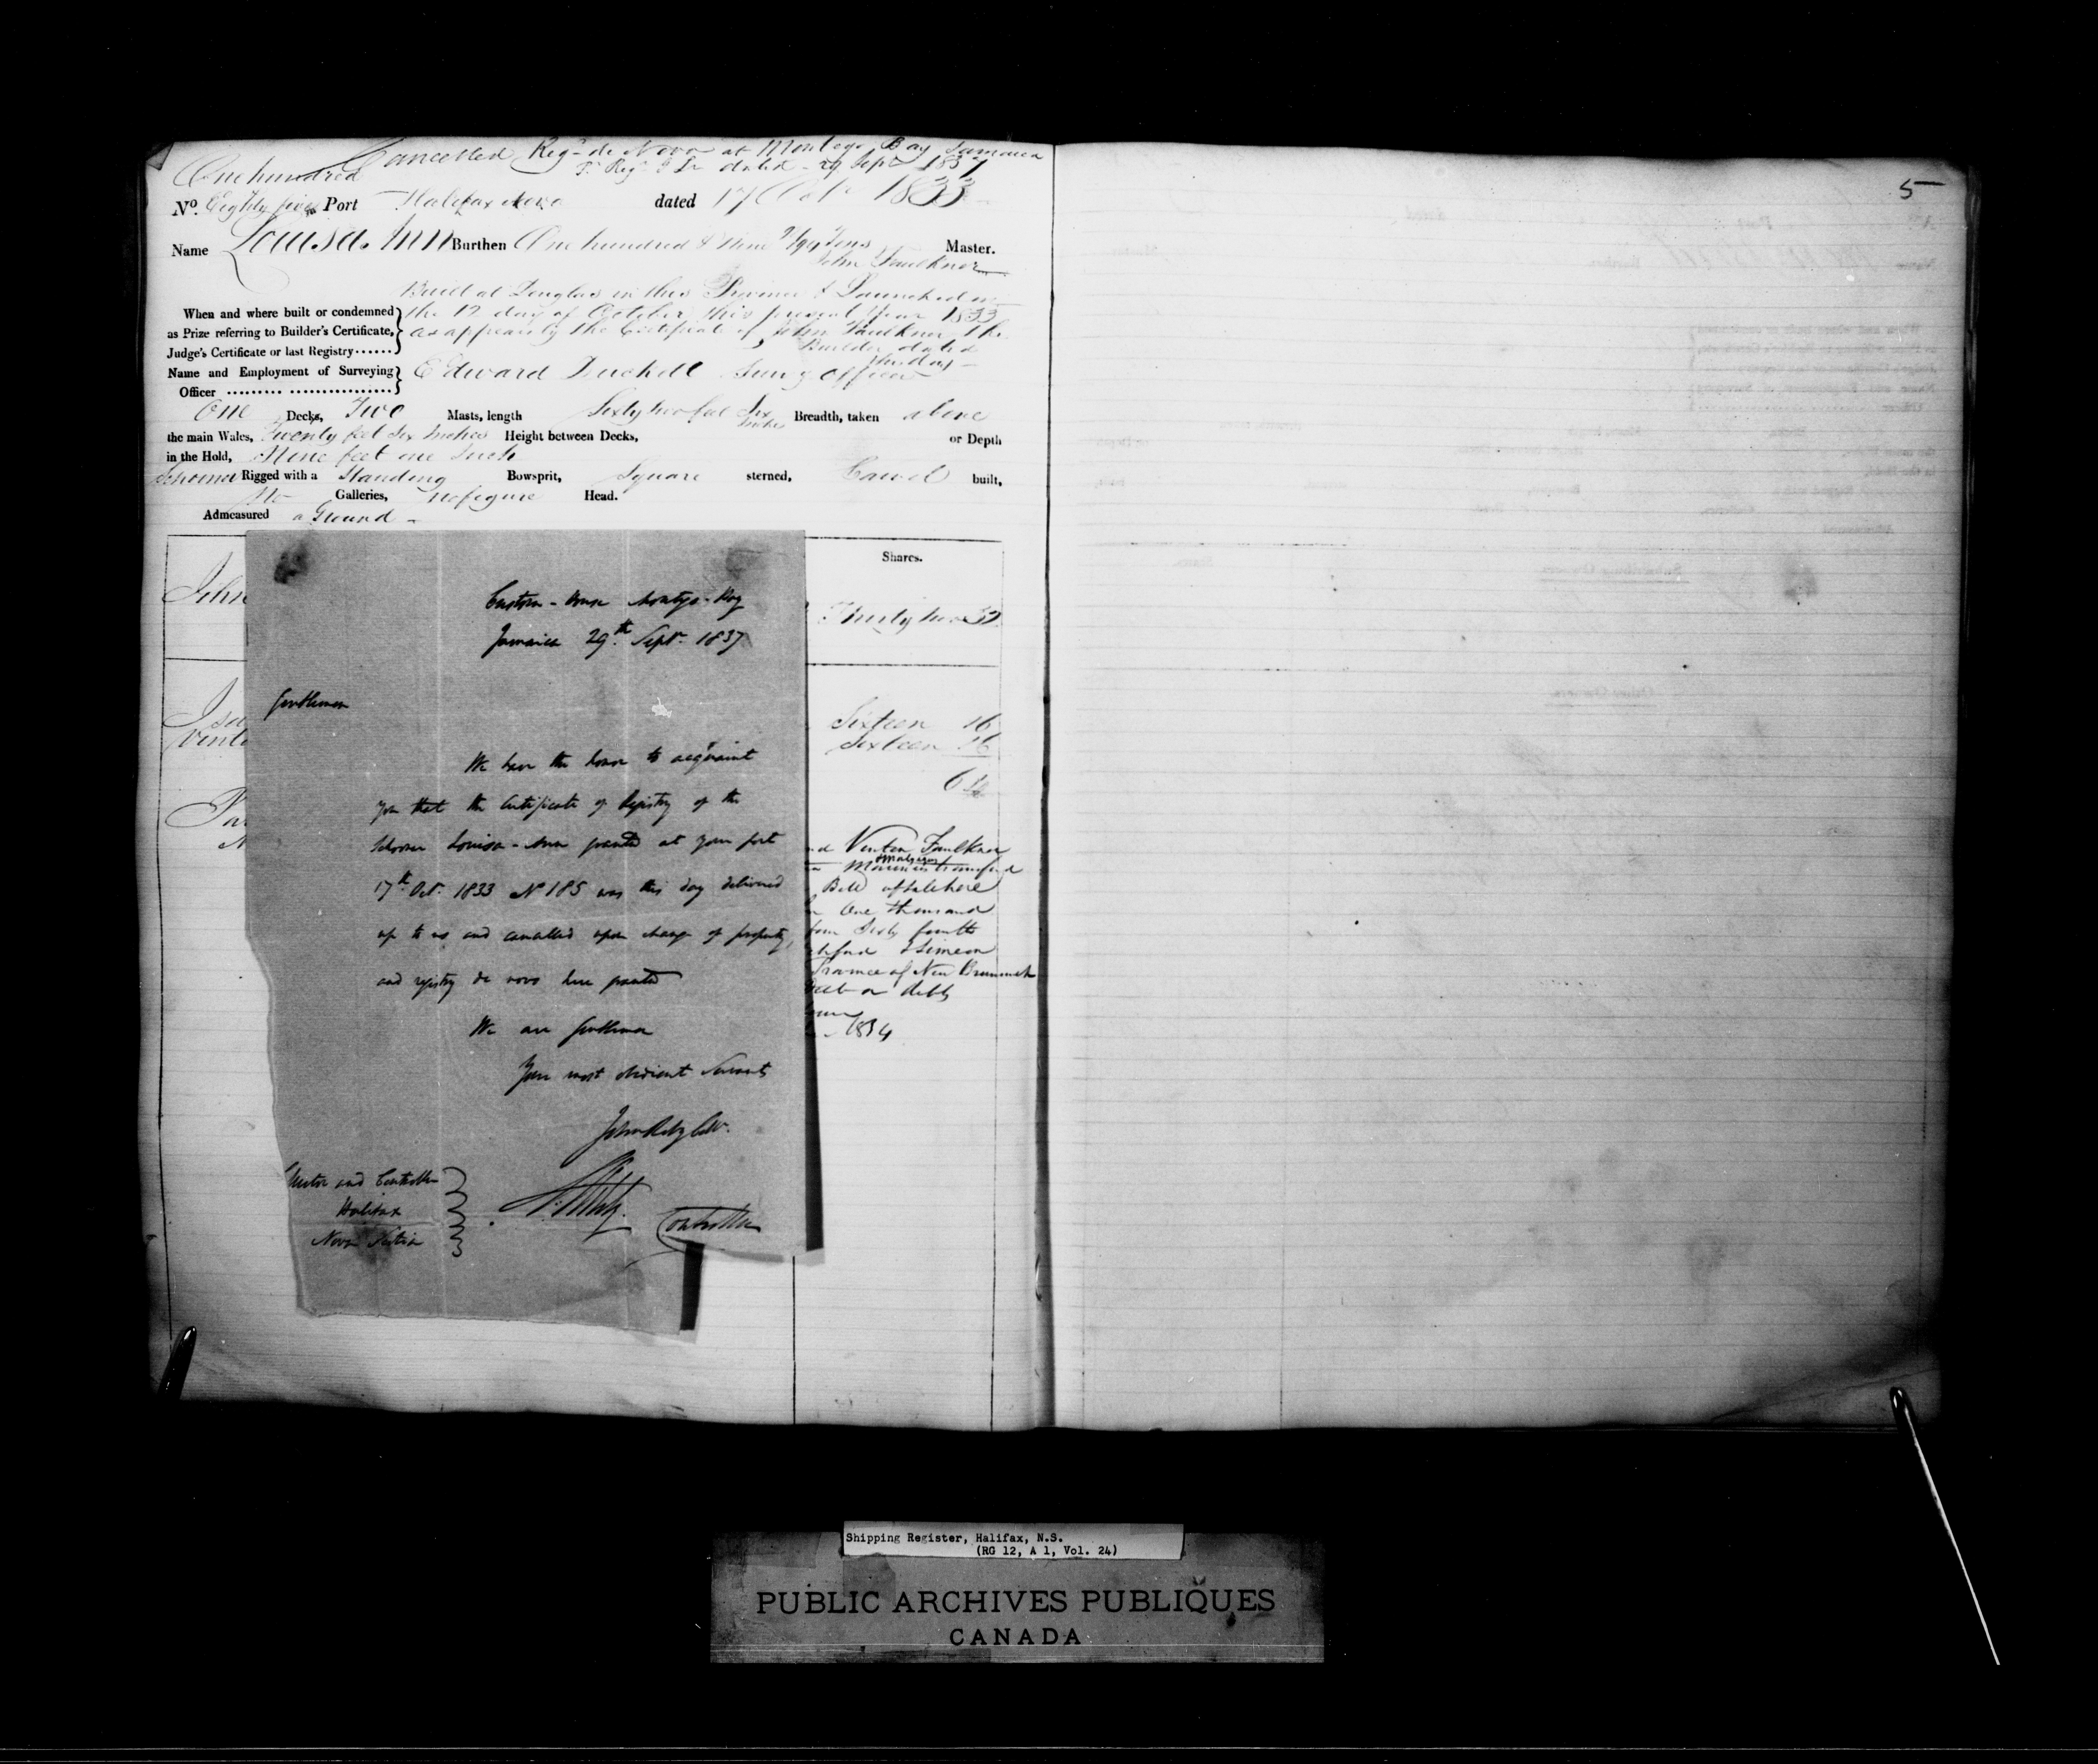 Cancelled Reg.d de Novo at Montego Bay Jamaica
dated 29 Sept 1837
One hundred
No. Eighty five Port Halifax Nova dated 17 Oct 1833
Name Louisa Ann Burthen One hundred & Nine Tons Master.
John Faulkner
Built at Douglas in this Province & Launched on
When and where built or condemned the 12 day of October this present Year 1833
as Prize referring to Builder's Certificate, as appears by the Certificate of John Faulkner the
Judge's Certificate or last Registry...... Builder dated
this day
Name and Employment of Surveying Edward Officer
Officer
One Decks, Two Masts, length Sixty two feet Six Inches Breadth, taken above
the main Wales, Twenty feet Six Inches Height between Decks, or Depth
in the Hold, Nine feet one Inch
Schooner Rigged with a Standing Bowsprit, Square sterned, Carvel built,
No Galleries, no figure Head.
Admeasured a Ground
Shares.
John
Thirty two 32
Sixteen 16
Sixteen 16
64
Venten Faulkner
Bill of Sale here
One thousand
Sixty fourths
& Simeon
Province of New Brunswick
Debt or debts
1834
Custom-House Montego-Bay
Jamaica 29th Septr. 1837
Gentlemen
We have the honor to acquaint
you that the Certificate of Registry of the
Schooner Louisa-Ann granted at your port
17th Oct. 1833 No 185 was this day delivered
up to us and cancelled upon change of property,
and registry de novo here granted
We are Gentlemen
Your most obedient Servants
Controller
and Controller
Halifax
Nova Scotia
5
Shipping Register, Halifax, N.S.
(RG 12, A 1, Vol. 24)
PUBLIC ARCHIVES PUBLIQUES
CANADA